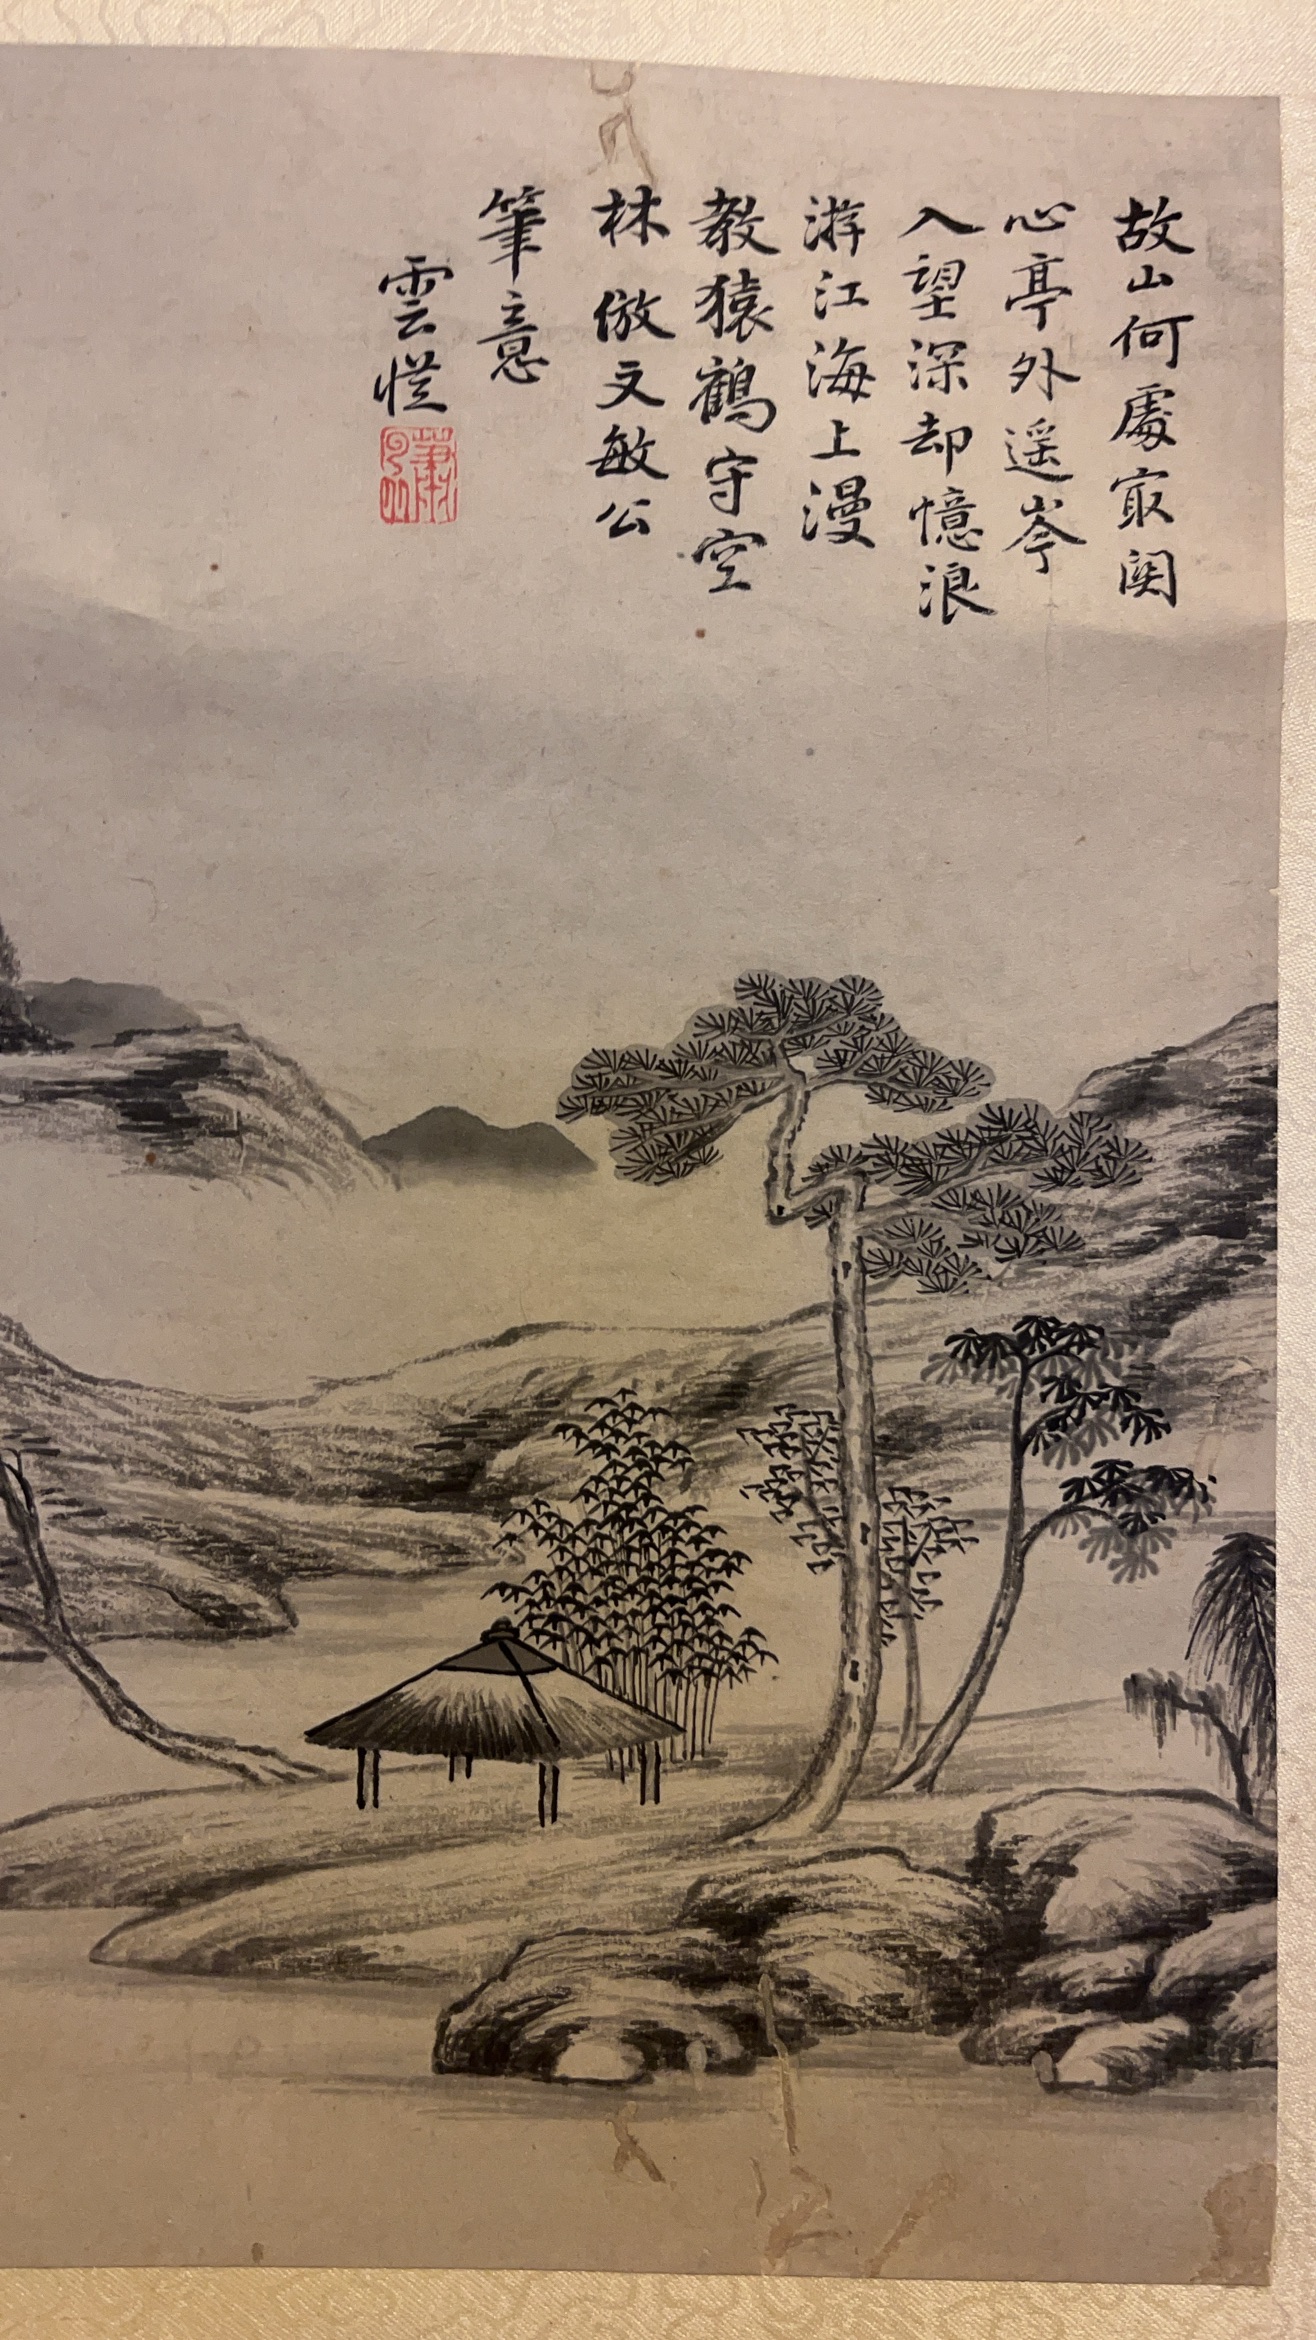 故山何處寂関
心亭外遥岑
入望深却憶浪
游江海上漫
教猿鶴守空
林 倣文敏公
筆意
雲從